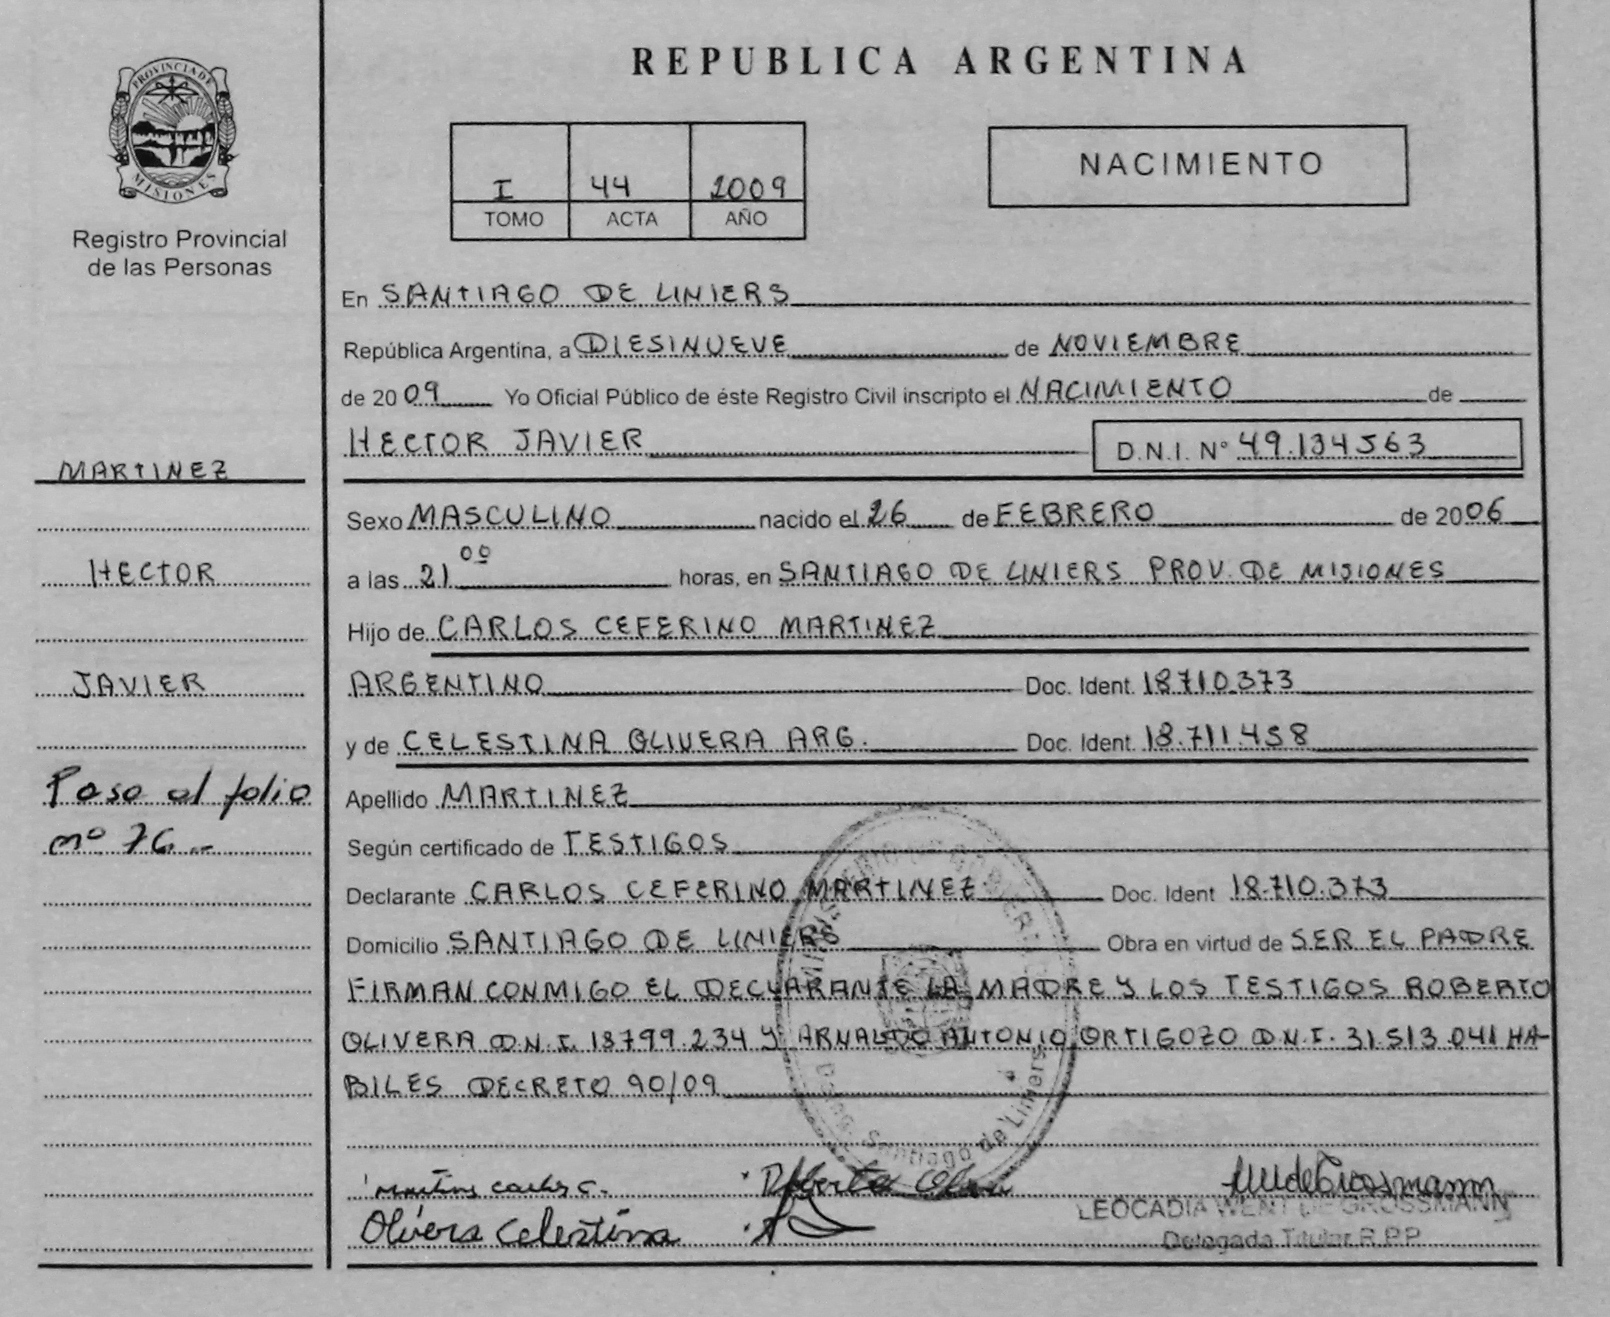 REPUBLICA ARGENTINA
PROVINCIA DE
MISIONES
Registro Provincial
de las Personas
I 44 2009
TOMO ACTA AÑO
NACIMIENTO
En SANTIAGO DE LINIERS
República Argentina, a DIESINUEVE de NOVIEMBRE
de 2009 Yo Oficial Público de éste Registro Civil inscripto el NACIMIENTO de
HECTOR JAVIER D.N.I. N° 49.134563
MARTINEZ
Sexo MASCULINO nacido el 26 de FEBRERO de 2006
HECTOR
a las 21 00 horas, en SANTIAGO DE LINIERS PROV. DE MISIONES
Hijo de CARLOS CEFERINO MARTINEZ
JAVIER
ARGENTINO Doc. Ident. 18710.373
y de CELESTINA OLIVERA ARG. Doc. Ident. 18.711.458
Paso al folio
nº 76.-
Apellido MARTINEZ
Según certificado de TESTIGOS
Declarante CARLOS CEFERINO MARTINEZ Doc. Ident 18.710.373
Domicilio SANTIAGO DE LINIERS Obra en virtud de SER EL PADRE
FIRMAN CONMIGO EL DECLARANTE LA MADRE Y LOS TESTIGOS ROBERTO
OLIVERA D.N.I. 18799.234 Y ARNALDO ANTONIO ORTIGOZO D.N.I. 31.513.041 HA-
BILES DECRETO 90/09
Santiago de Liniers
Olivera Celestina
LEOCADIA WENT DE GROSSMANN
Delegada Titular R.P.P.